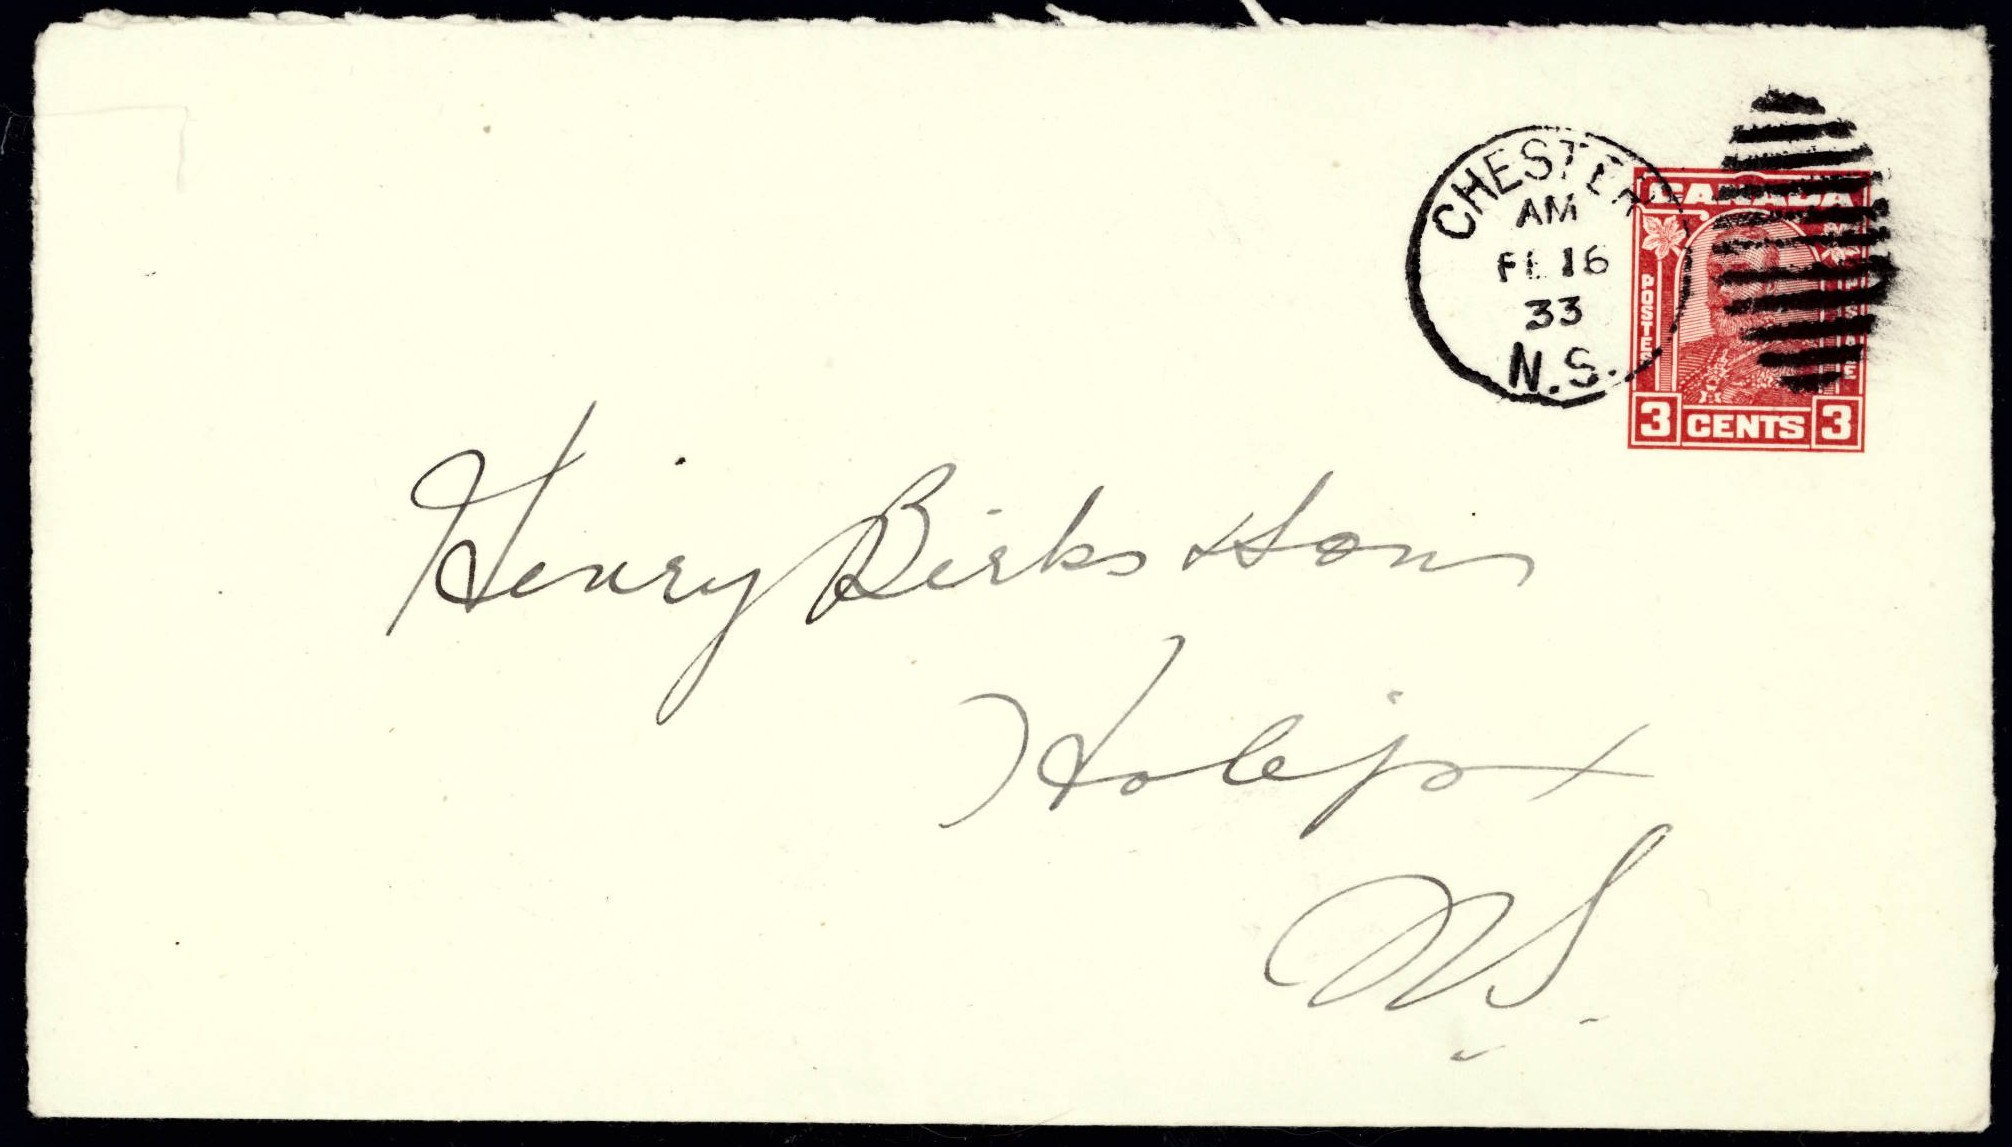 CHESTER
AM
FE 16
33
N.S.
CANADA
POSTES POSTAGE
3 CENTS 3
Henry Birks & Sons
Halifax
N.S.